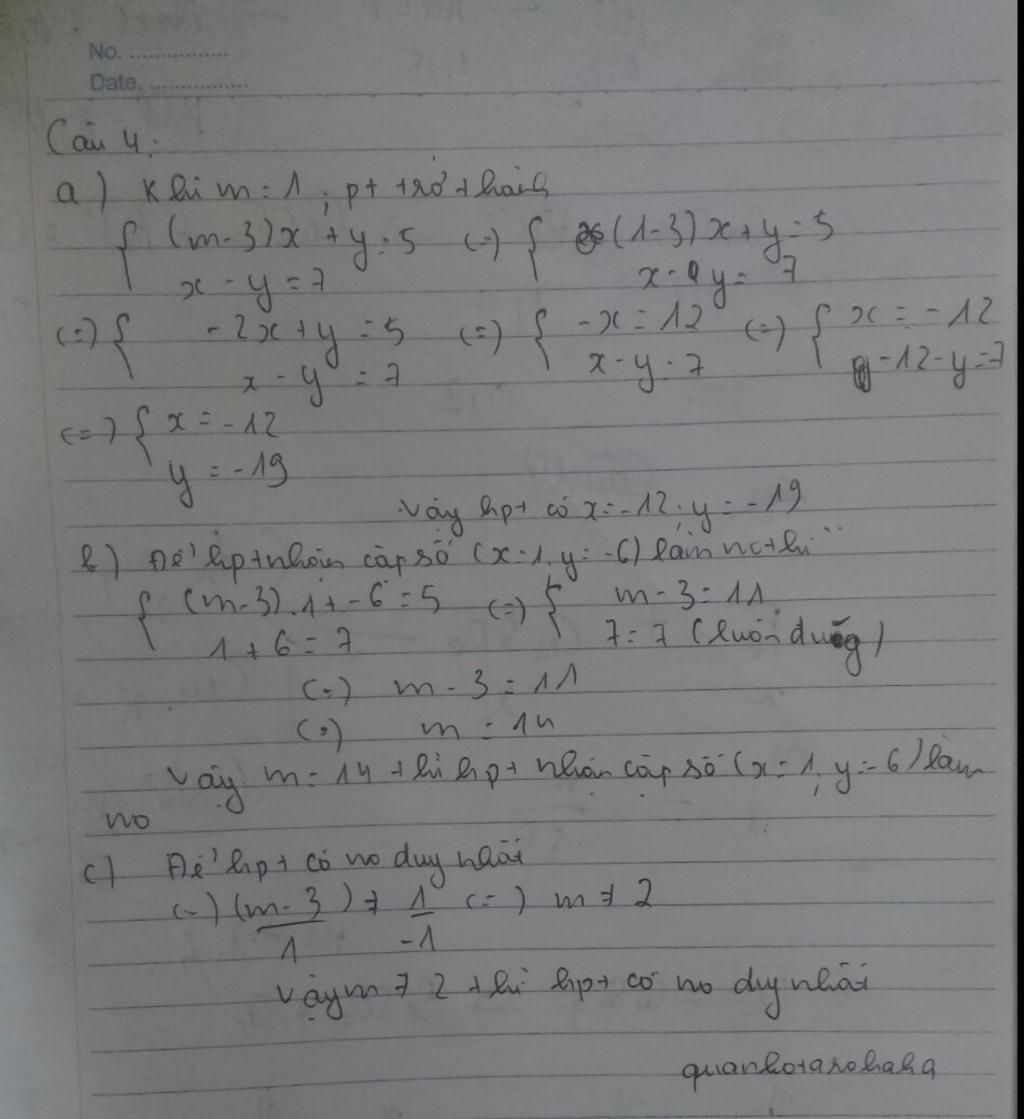 No. ................
Date. ................
Câu 4:
a) Khi m = 1, pt trở thành
{ (m-3)x + y = 5 (=) { (1-3)x + y = 5
x - y = 7 x - y = 7
(=) { -2x + y = 5 (=) { -x = 12 (=) { x = -12
x - y = 7 x - y = 7 -12 - y = 7
(=) { x = -12
y = -19
Vậy hpt có x = -12, y = -19
b) Để hpt nhận cặp số (x = 1, y = -6) làm no thì
{ (m-3).1 + -6 = 5 (=) { m - 3 = 11
1 + 6 = 7 7 = 7 (luôn đúng)
(=) m - 3 = 11
(=) m = 14
Vậy m = 14 thì hpt nhận cặp số (x = 1, y = -6) làm
no
c) Để hpt có no duy nhất
(=) (m-3)/1 ≠ 1/-1 (=) m ≠ 2
Vậy m ≠ 2 thì hpt có no duy nhất
quanhotarohaha